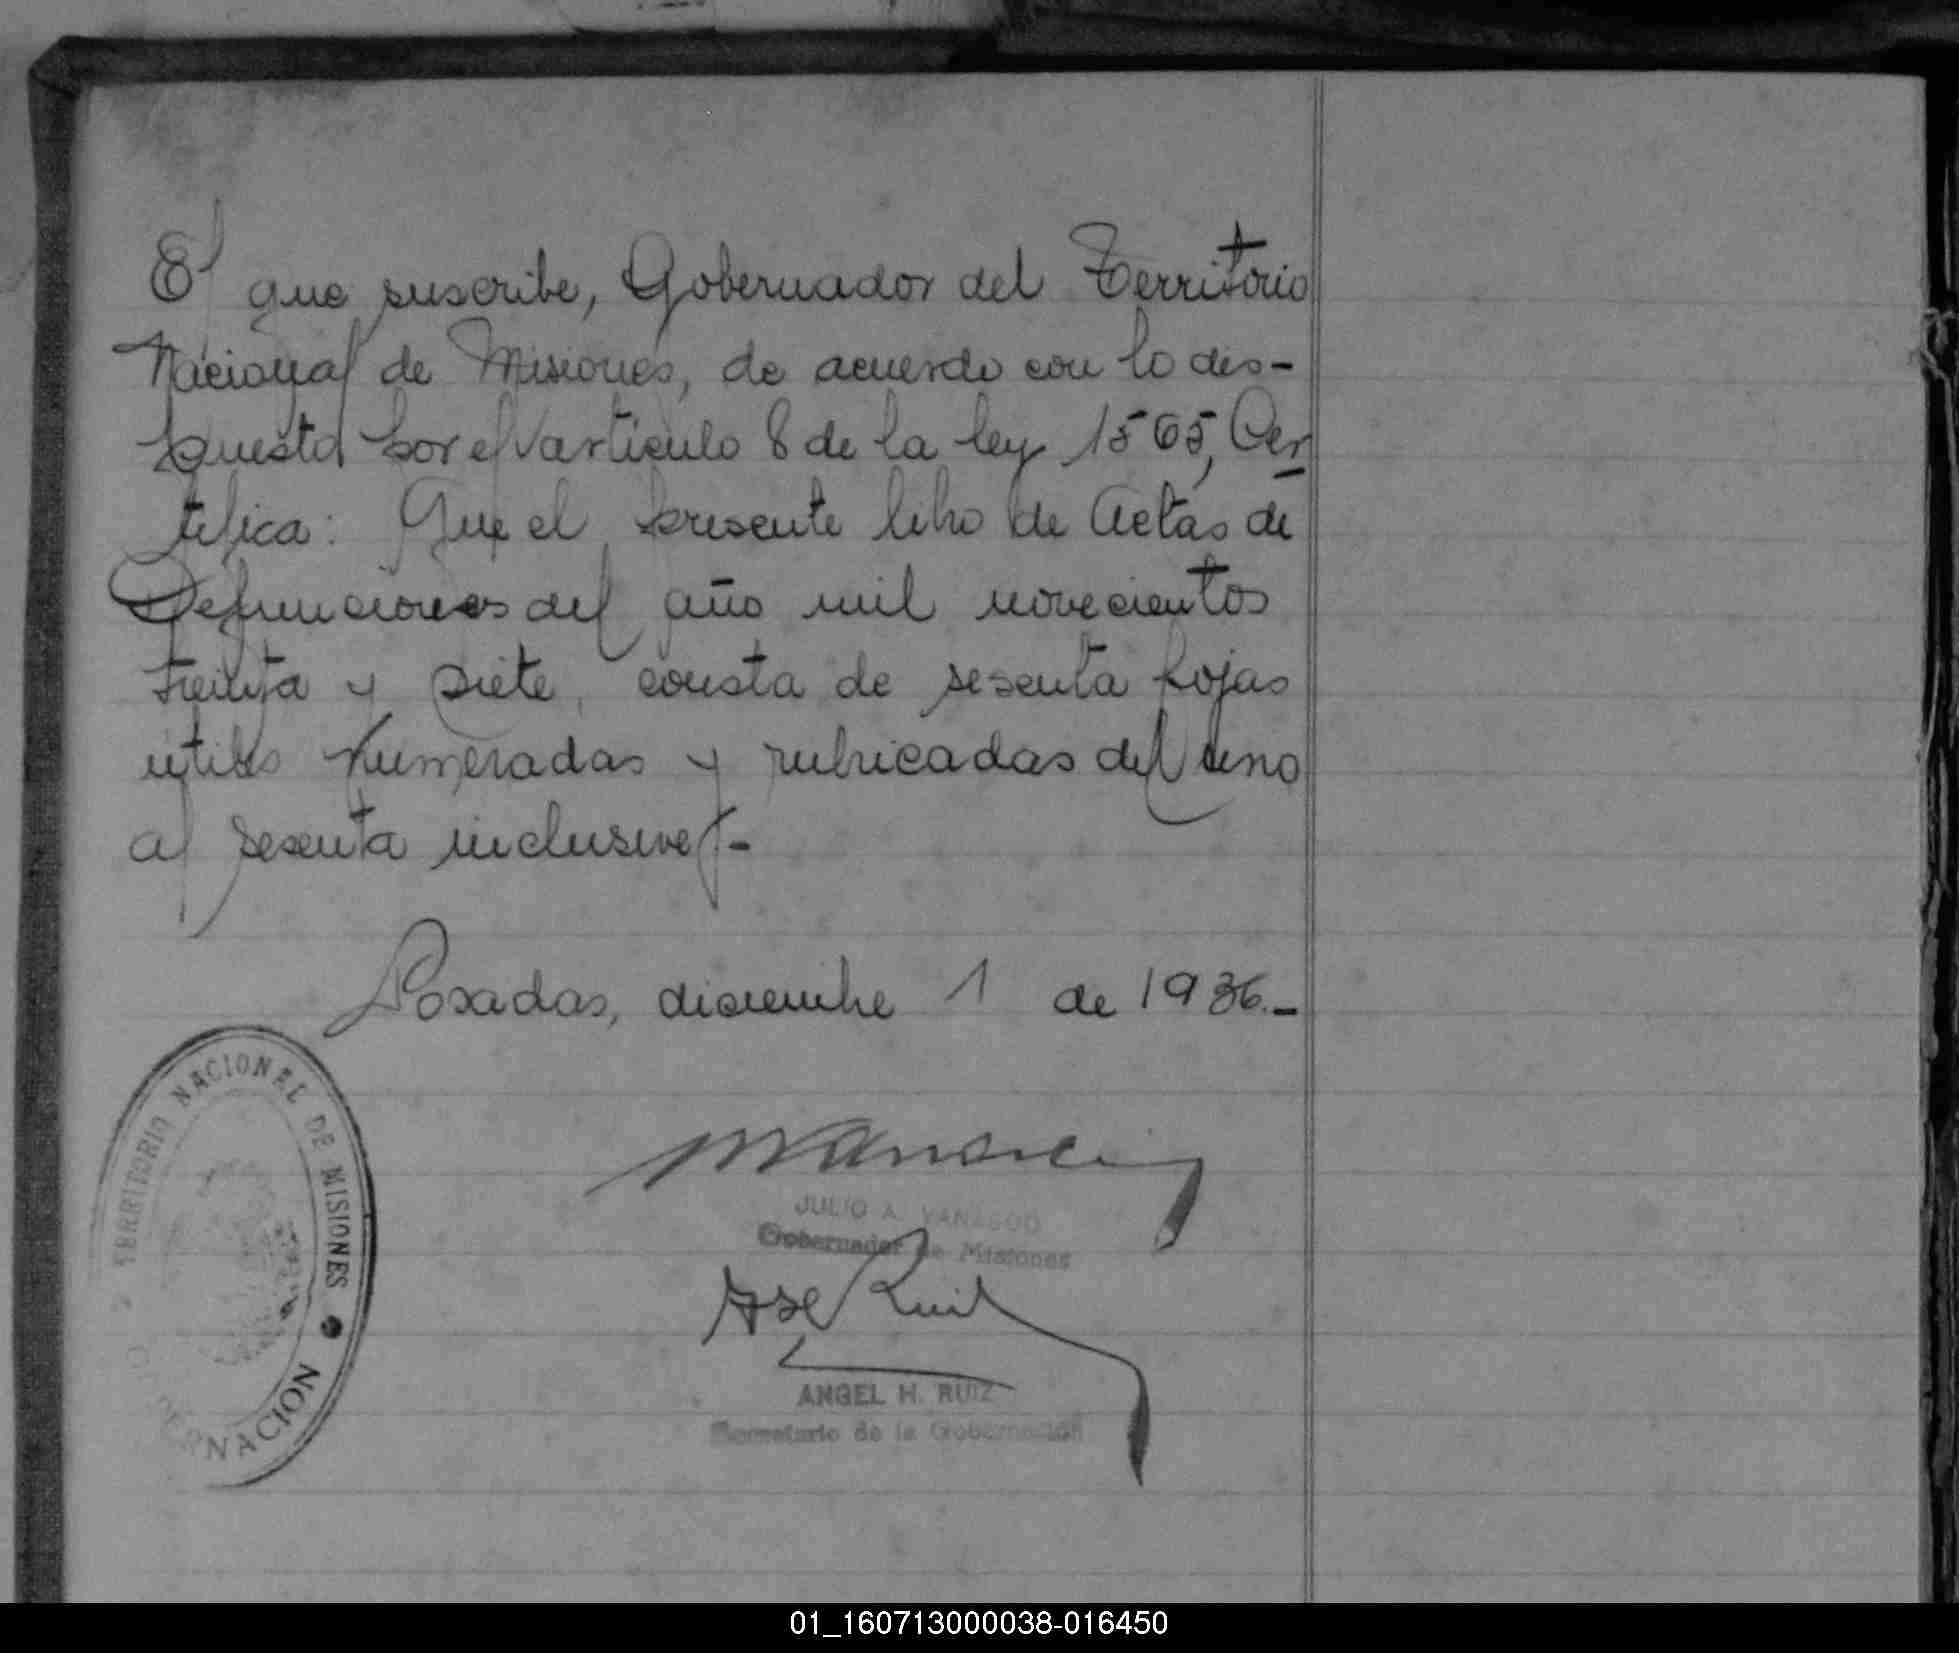 El que suscribe, Gobernador del Territorio
Nacional de Misiones, de acuerdo con lo dis-
puesto por el articulo 8 de la ley 1565, Cer
tifica: Que el presente libro de Actas de
Defunciones del año mil novecientos
treinta y siete, consta de sesenta fojas
útiles numeradas y rubricadas del uno
al sesenta inclusive.-
Posadas, diciembre 1 de 1936.-
TERRITORIO NACIONAL DE MISIONES
JULIO A. VANASCO
Gobernador de Misiones
Ruiz
ANGEL H. RUIZ
Secretario de la Gobernación
01_160713000038-016450